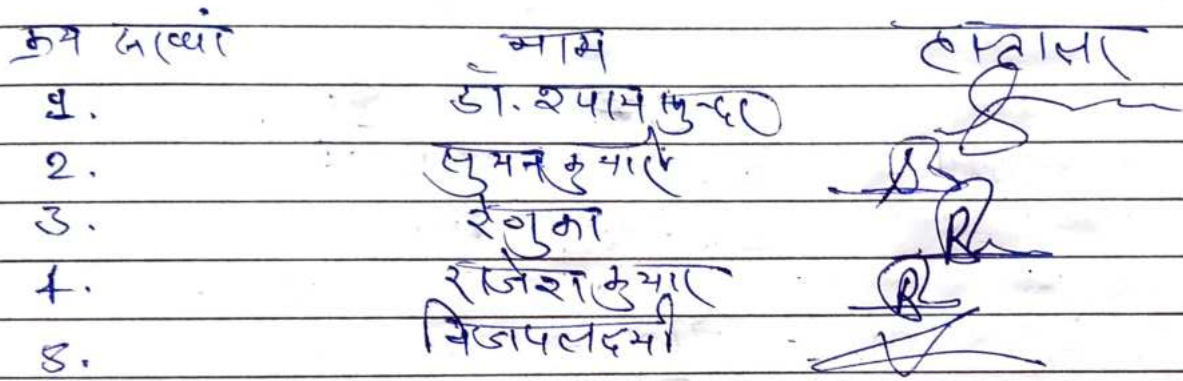 क्रय संख्या नाम हस्ताक्षर
1. डॉ. श्याम सुन्दर
2. सुमन कुमारी
3. रेणुका
4. राजेश कुमार
5. विजयलक्ष्मी